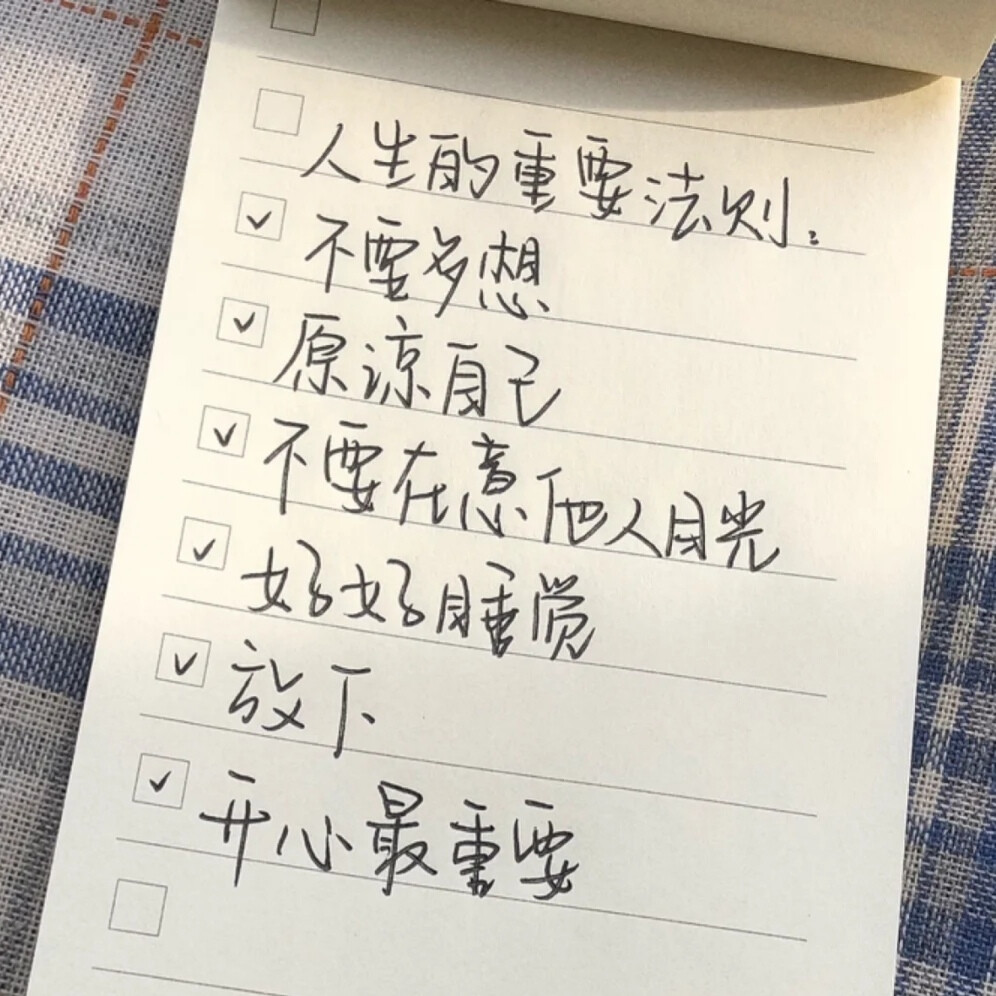 人生的重要法则：
不要多想
原谅自己
不要在意他人目光
好好睡觉
放下
开心最重要